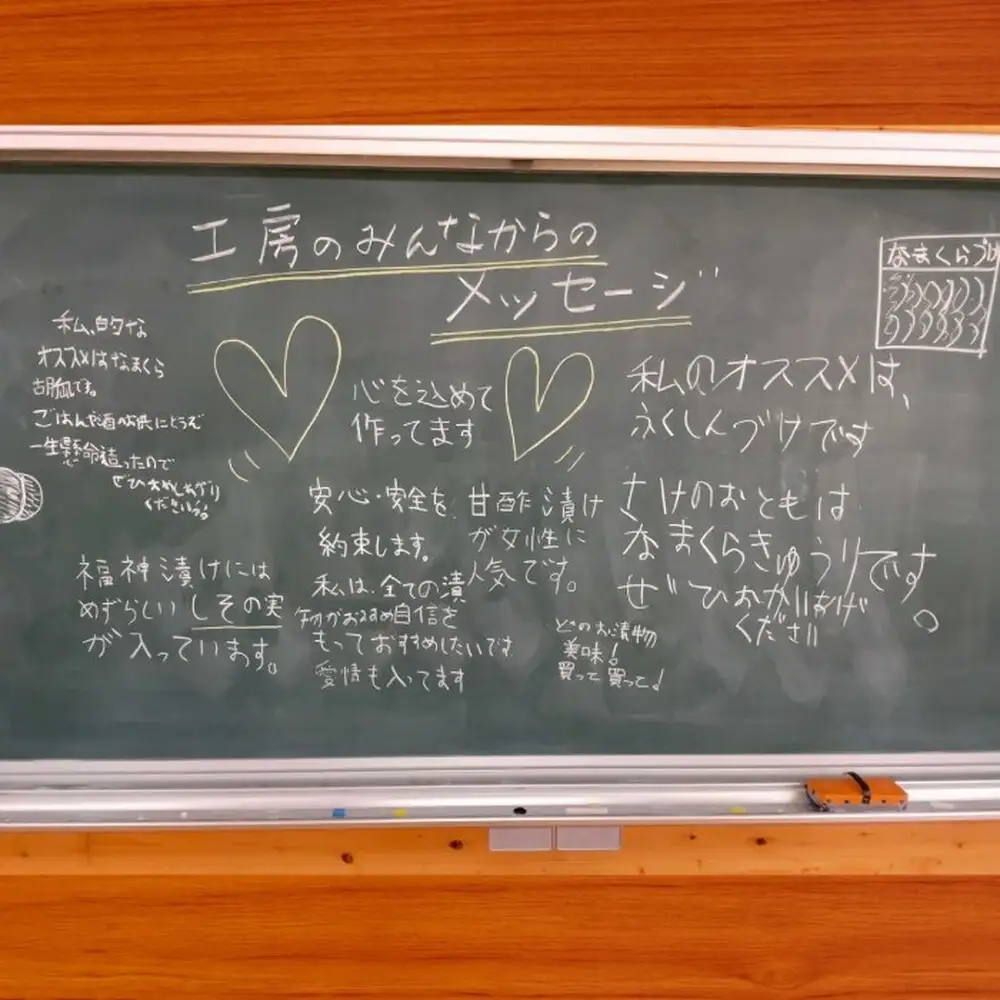 工房のみんなからの
メッセージ
なまくらづけ
私的な
オススメはなまくら
胡瓜です。
ごはんや酒のお供にどうぞ
一生懸命造ったので
ぜひおめしあがり
ください。
心を込めて
作ってます
私のオススメは、
ふくしんづけです
安心・安全を
約束します。
甘酢漬け
が女性に
人気です。
さけのおともは
なまくらきゅうりです。
ぜひおあがりあげ
ください
福神漬けには
めずらしいしその実
が入っています。
私は、全ての漬
物がおすすめ自信を
もっておすすめしたいです
愛情も入ってます
どのお漬物
美味!
買って買って!